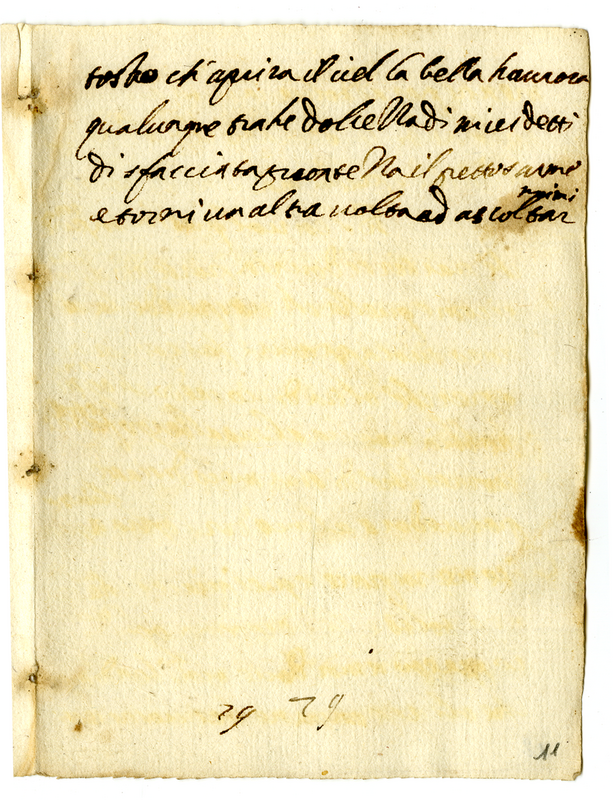 tosto ch'aprira il ciel la bella haurora
qualunque trahe dolce Na di miei detti
di sfacciata fronte Na il petto
e torni un altra uolta ad ascoltar
mimi
29 29
11